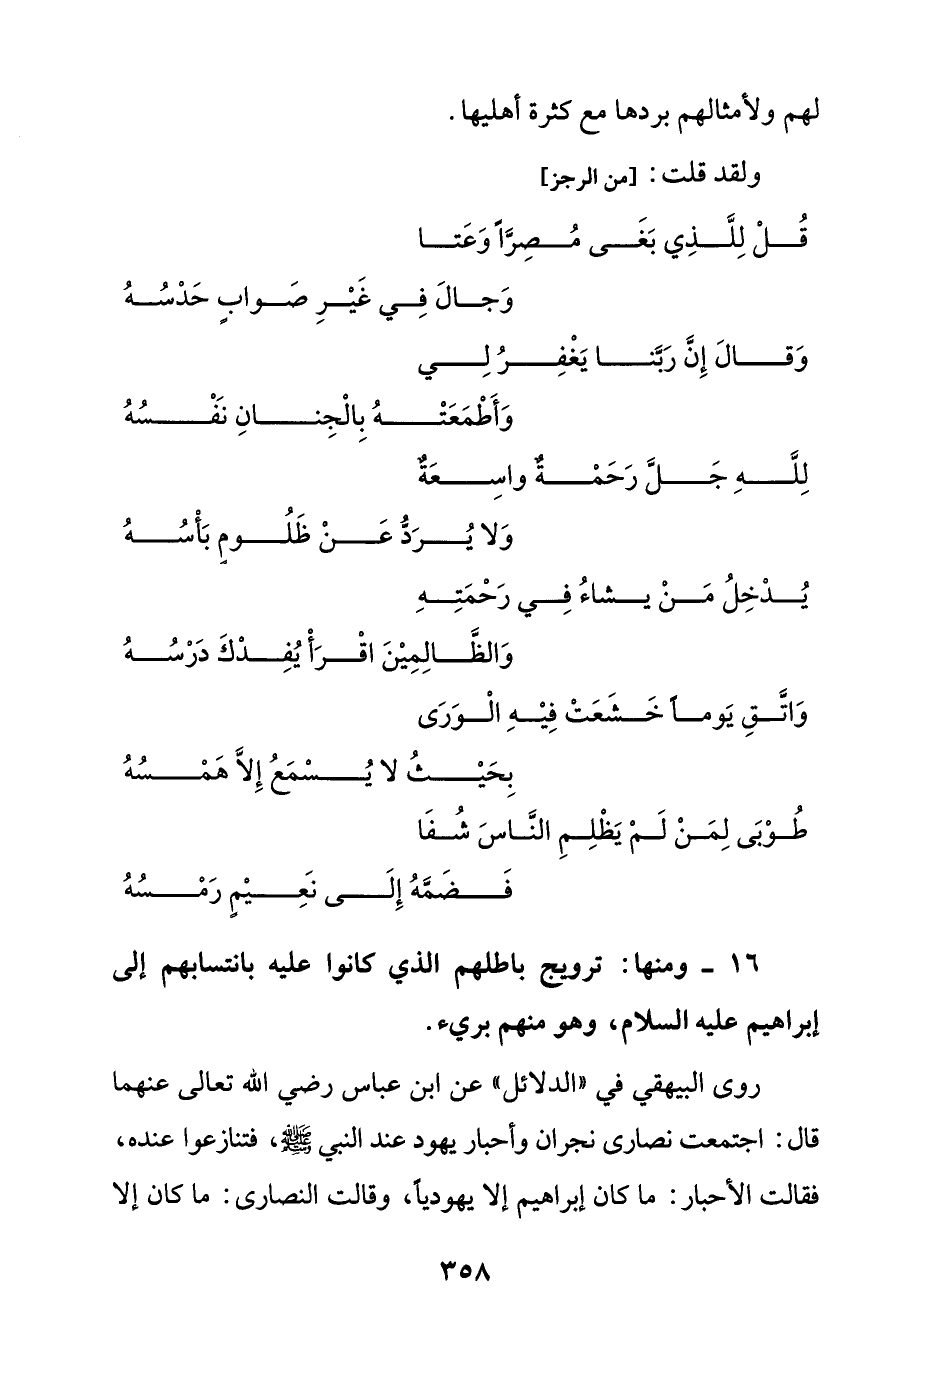 لهم ولأمثالهم بردها مع كثرة أهليها.
ولقد قلت: [من الرجز]
قُلْ لِلَّذِي بَغَى مُصِرَّاً وَعَتا
وَجالَ فِي غَيْرِ صَوابٍ حَدْسُهُ
وَقالَ إِنَّ رَبَّنا يَغْفِرُ لِي
وَأَطْمَعَتْهُ بِالْجِنانِ نَفْسُهُ
لِلَّهِ جَلَّ رَحَمْةٌ واسِعَةٌ
وَلا يُرَدُّ عَنْ ظَلُومٍ بَأْسُهُ
يُدْخِلُ مَنْ يشاءُ فِي رَحْمَتِهِ
وَالظَّالِمِيْنَ اقْرَأْ يُفِدْكَ دَرْسُهُ
وَاتَّقِ يَوماً خَشَعَتْ فِيْهِ الْوَرَى
بِحَيْثُ لا يُسْمَعُ إِلاَّ هَمْسُهُ
طُوْبَى لِمَنْ لَمْ يَظْلِمِ النَّاسَ شُفَا
فَضَمَّهُ إِلَى نَعِيْمٍ رَمْسُهُ
١٦ ـ ومنها: ترويج باطلهم الذي كانوا عليه بانتسابهم إلى
إبراهيم عليه السلام، وهو منهم بريء.
روى البيهقي في «الدلائل» عن ابن عباس رضي الله تعالى عنهما
قال: اجتمعت نصارى نجران وأحبار يهود عند النبي ﷺ، فتنازعوا عنده،
فقالت الأحبار: ما كان إبراهيم إلا يهودياً، وقالت النصارى: ما كان إلا
٣٥٨